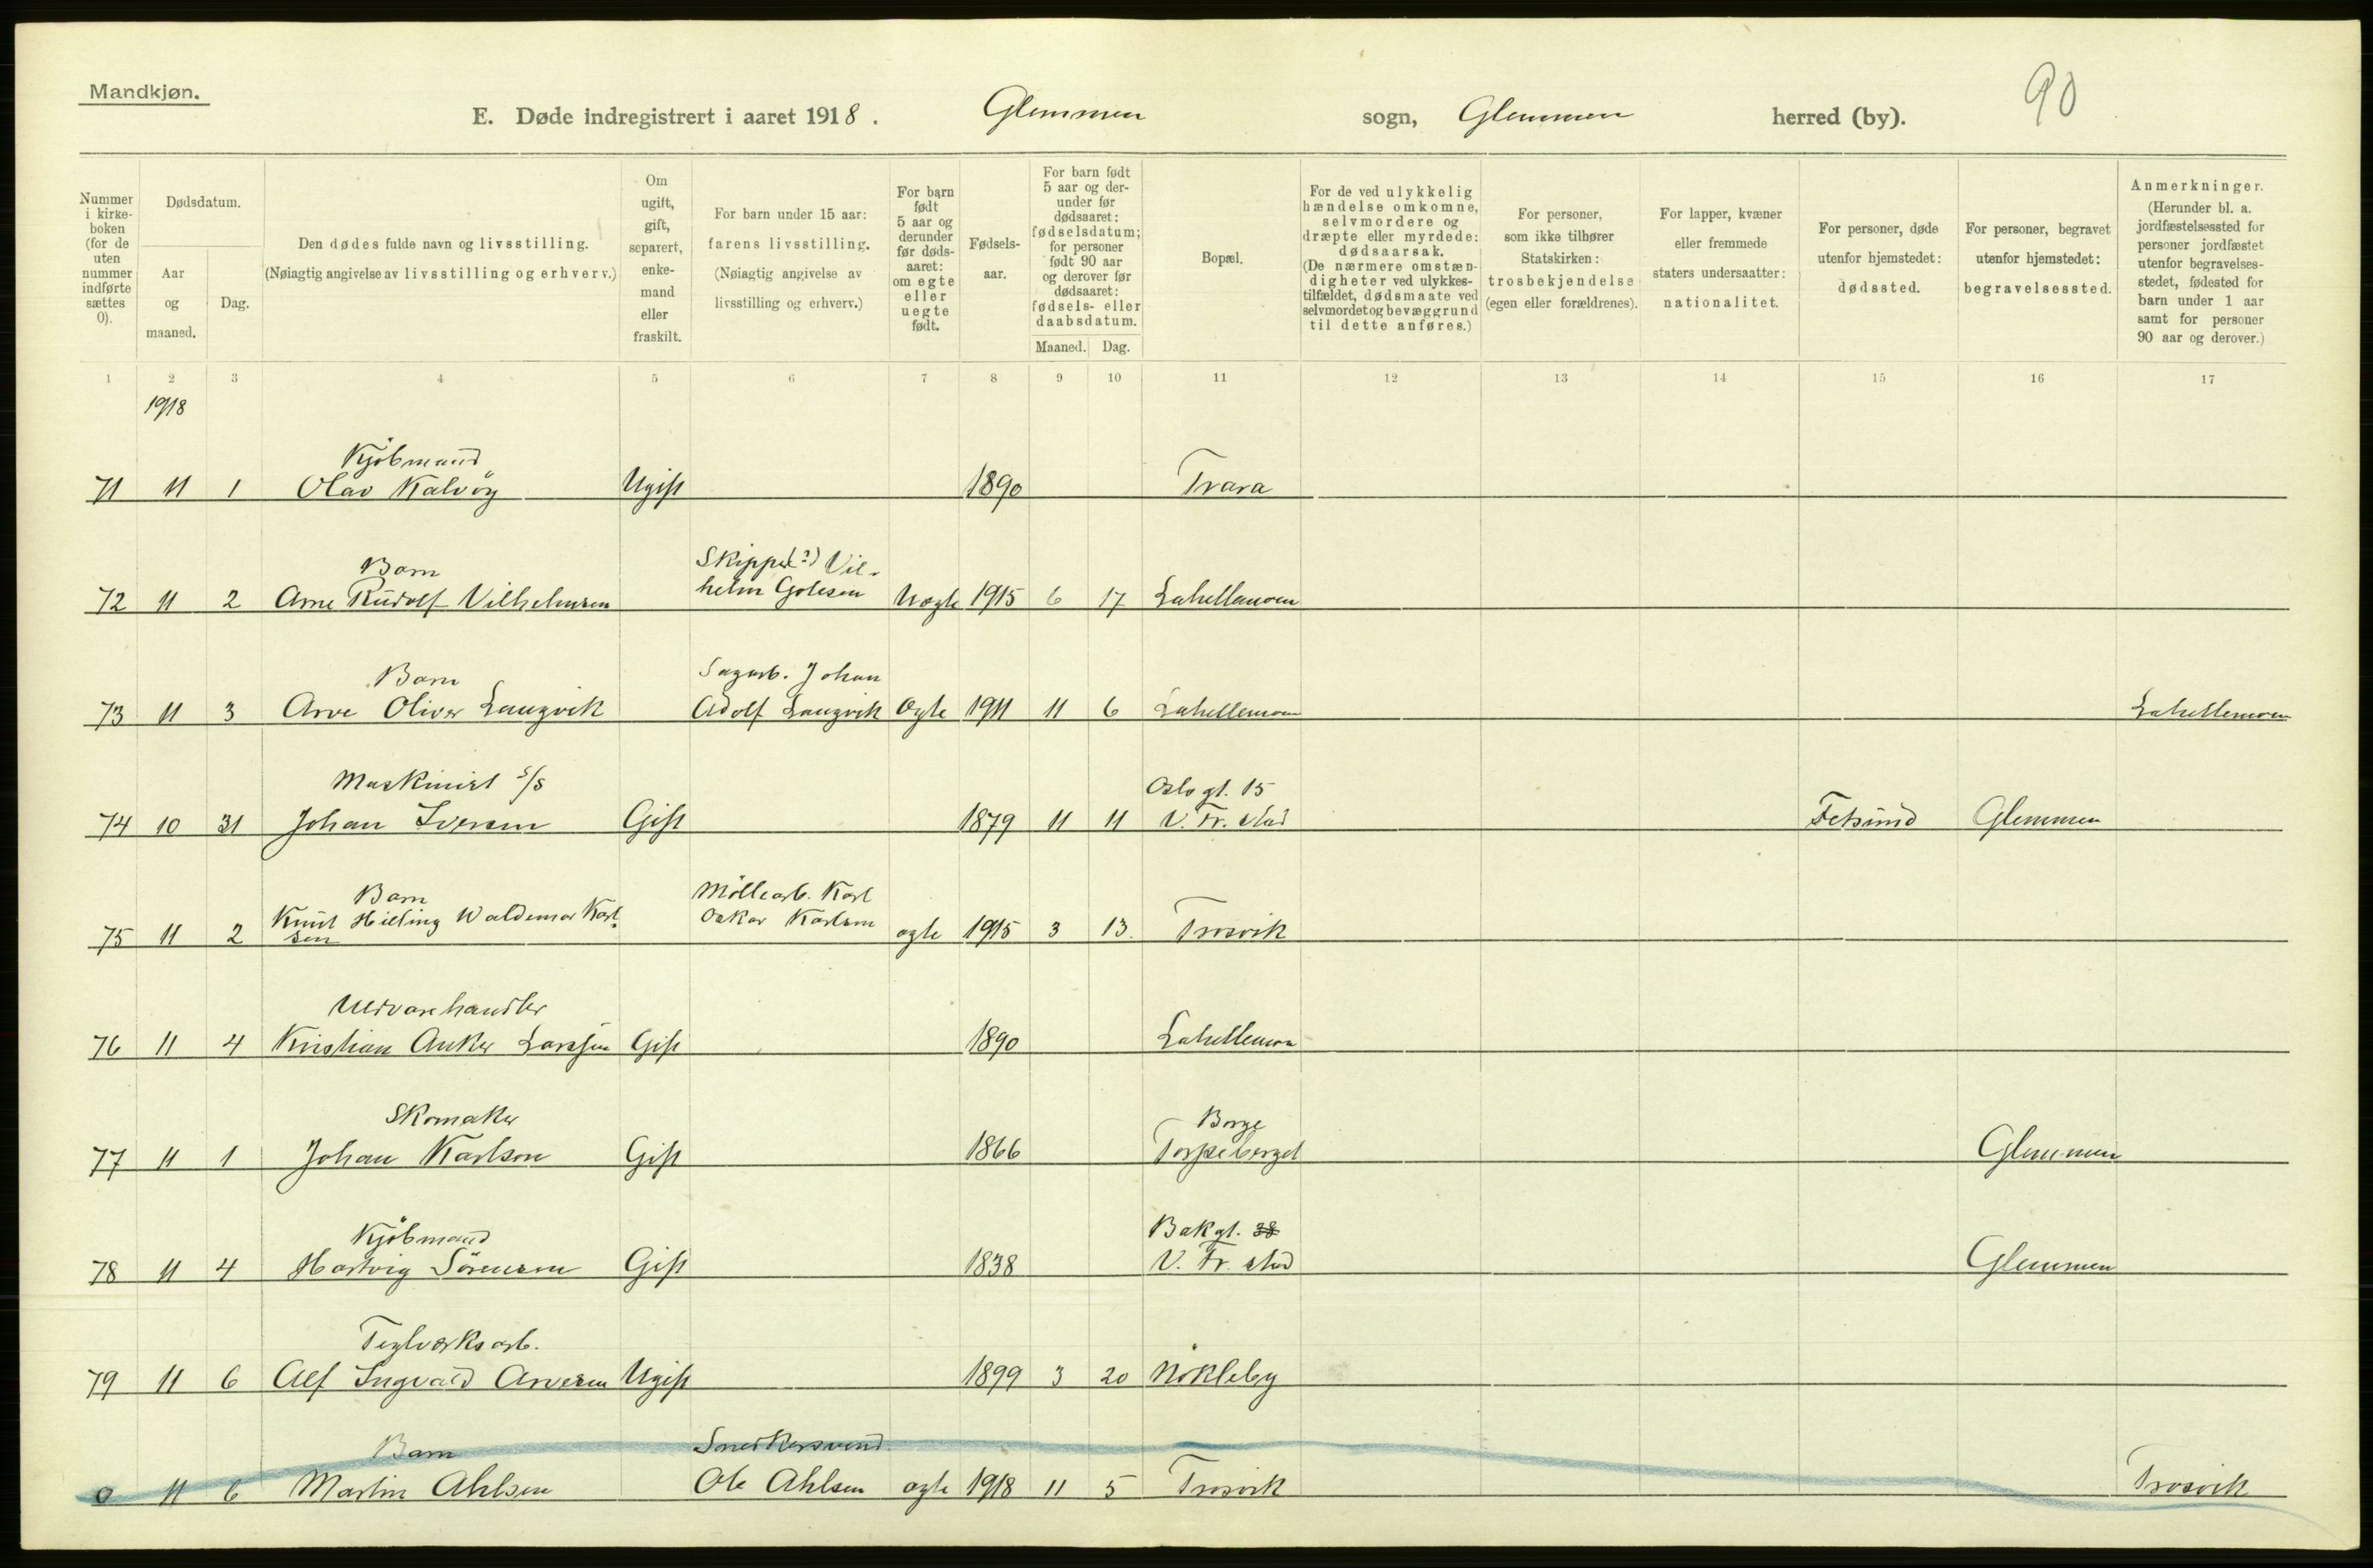 Mandkjøn.
E. Døde indregistrert i aaret 1918. Glemmen sogn, Glemmen herred (by). 90
Nummer i kirke-boken (for de uten nummer indførte sættes 0).
Dødsdatum.
Aar og maaned.
Dag.
Den dødes fulde navn og livsstilling.
(Nøiagtig angivelse av livsstilling og erhverv.)
Om ugift, gift, separert, enke-mand eller fraskilt.
For barn under 15 aar: farens livsstilling.
(Nøiagtig angivelse av livsstilling og erhverv.)
For barn født 5 aar og derunder før døds-aaret: om egte eller uegte født.
Fødsels-aar.
For barn født 5 aar og der-under før dødsaaret: fødselsdatum; for personer født 90 aar og derover før dødsaaret: fødsels- eller daabsdatum.
Maaned. Dag.
Bopæl.
For de ved ulykkelig hændelse omkomne, selvmordere og dræpte eller myrdede: dødsaarsak.
(De nærmere omstæn-digheter ved ulykkes-tilfældet, dødsmaate ved selvmordet og bevæggrund til dette anføres.)
For personer, som ikke tilhører Statskirken: trosbekjendelse (egen eller forældrenes).
For lapper, kvæner eller fremmede staters undersaatter: nationalitet.
For personer, døde utenfor hjemstedet: dødssted.
For personer, begravet utenfor hjemstedet: begravelsessted.
Anmerkninger.
(Herunder bl. a. jordfæstelsessted for personer jordfæstet utenfor begravelses-stedet, fødested for barn under 1 aar samt for personer 90 aar og derover.)
1 2 3 4 5 6 7 8 9 10 11 12 13 14 15 16 17
1918
Kjöbmand
71 11 1 Olav Kalvöy Ugift 1890 Trara
Barn Skipper(?) Vil-
72 11 2 Arne Rudolf Vilhelmsen helm Golesen Uegte 1915 6 17 Lahellemoen
Barn Sagarb. Johan
73 11 3 Arve Oliver Langvik Adolf Langvik Egte 1911 11 6 Lahellemoen Lahellemoen
Maskinist s/s Oslo gt. 15
74 10 31 Johan Iversen Gift 1879 11 11 V. Fr. stad Fetsund Glemmen
Barn Möllearb. Karl
75 11 2 Knut Hilling Waldemar Karl- Oskar Karlsen egte 1915 3 13. Trosvik
sen
Uldvarehandler
76 11 4 Kristian Anker Larssen Gift 1890 Lahellemoen
Skomaker Borge
77 11 1 Johan Karlson Gift 1866 Torpeberget Glemmen
Kjöbmand Bakgt. 38
78 11 4 Hartvig Sörensen Gift 1838 V. Fr. stad Glemmen
Teglverksarb.
79 11 6 Alf Ingvald Arvesen Ugift 1899 3 20 Nökleby
Barn Snedkersvend
0 11 6 Martin Ahlsen Ole Ahlsen egte 1918 11 5 Trosvik Trosvik